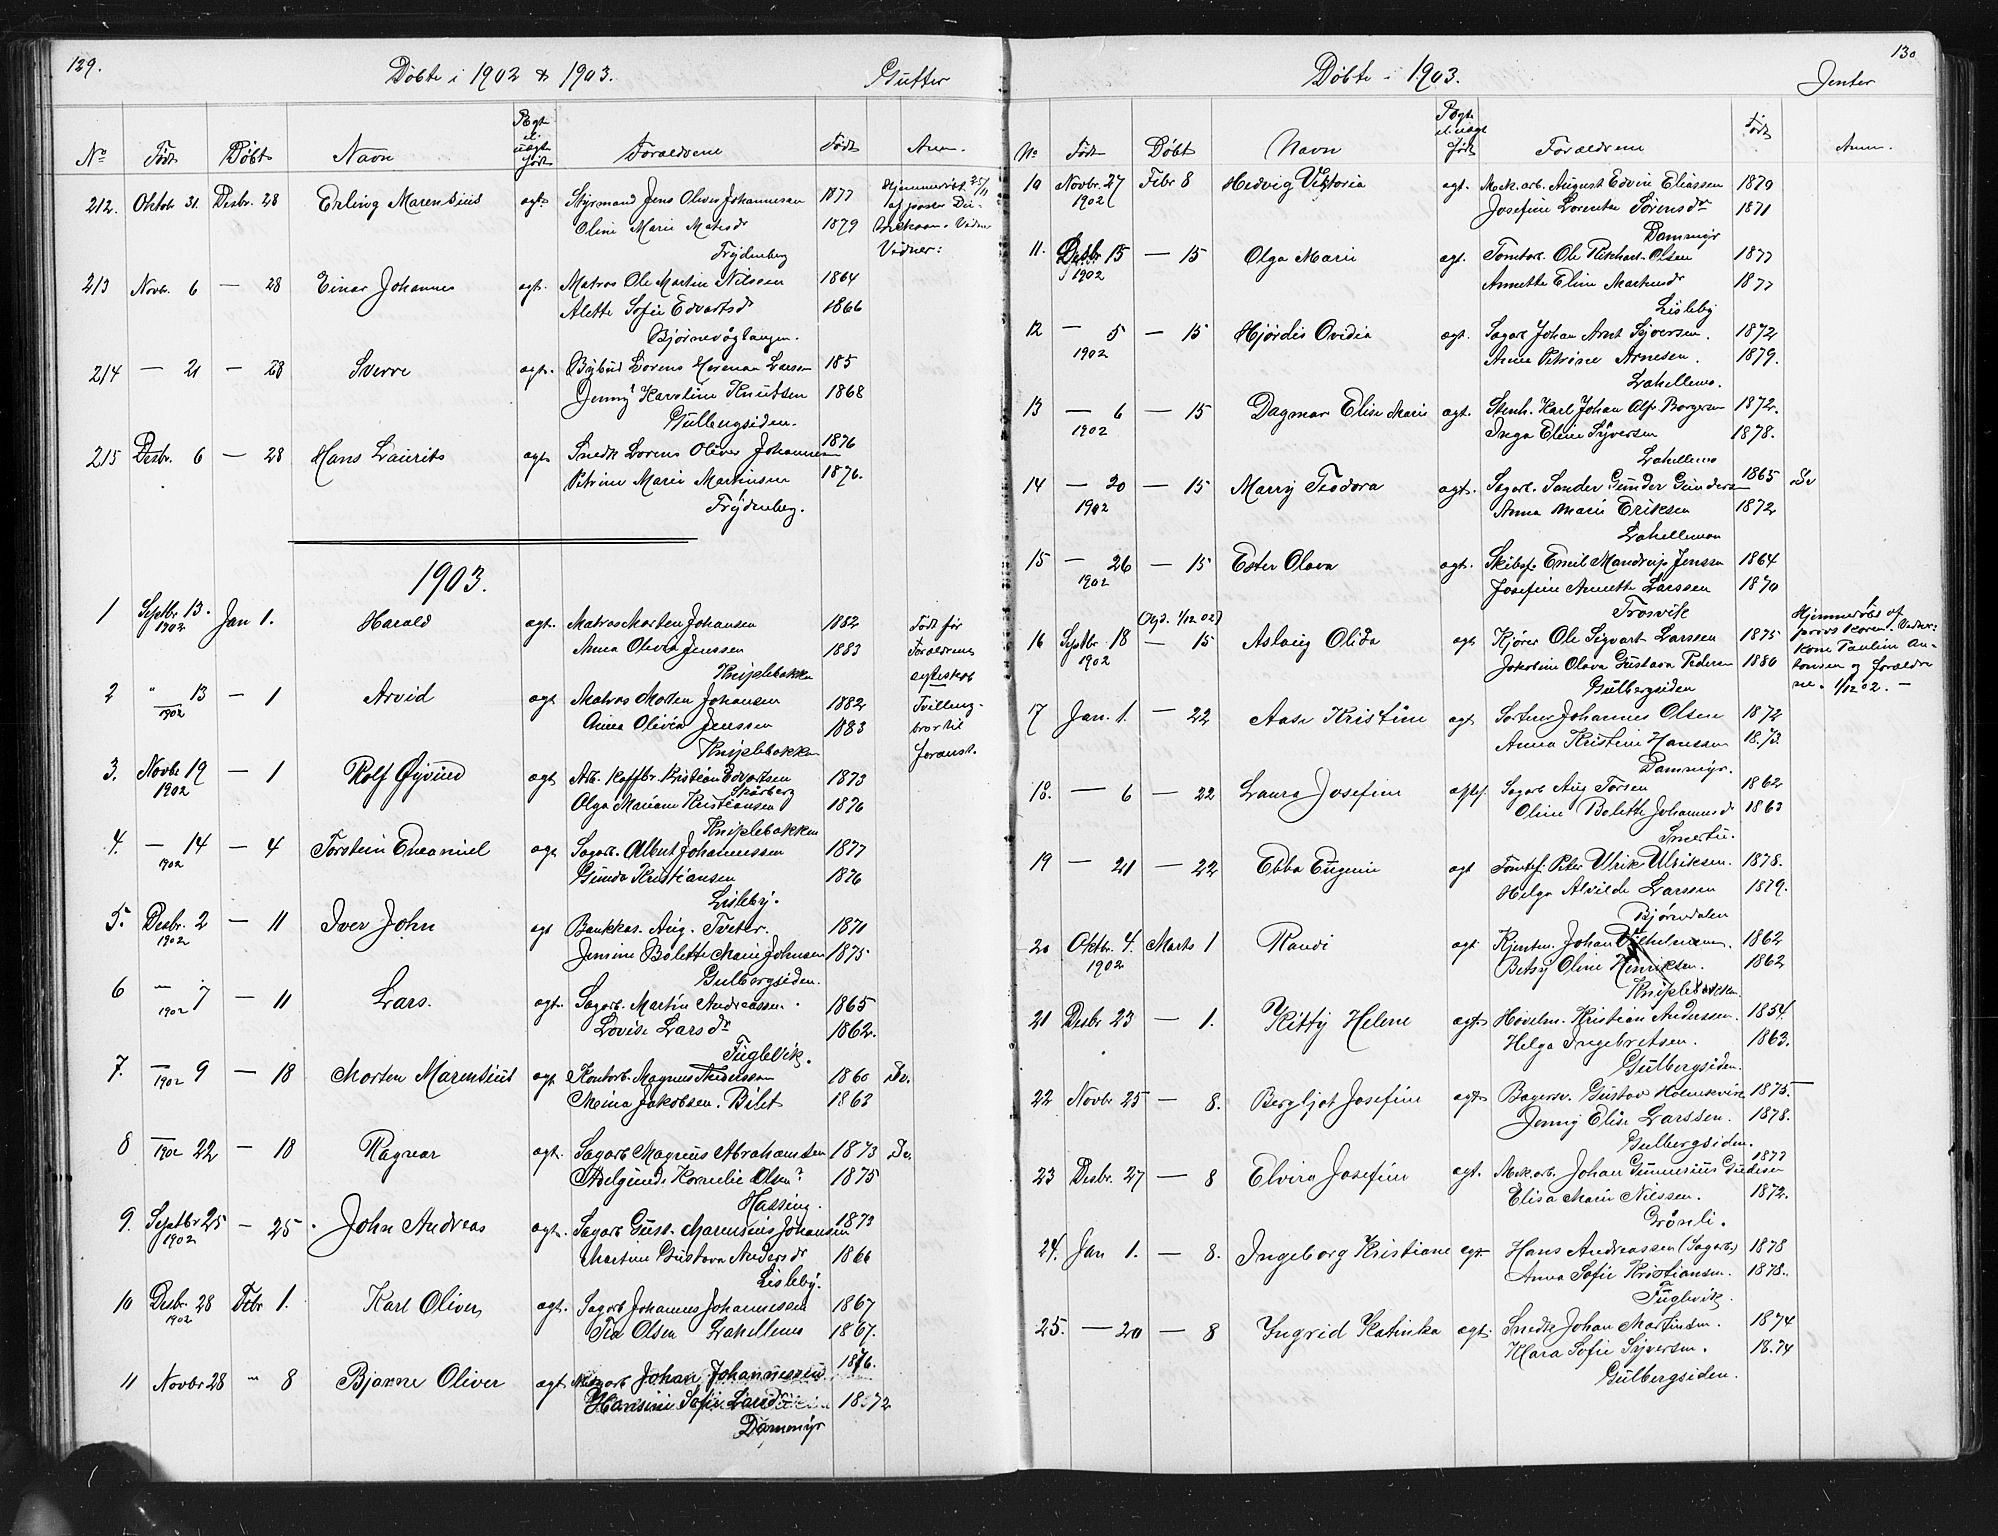 129.
Døbte i 1902 & 1903.
Gutter
No Født Døbt Navn Ægte el. uægte født Forældrene Født Anm.
212. Oktob. 31. Desbr. 28 Erling Marensius ægte Styrmand Jens Oliver Johannesen 1877 Hjemmedøbt 25/11
Oline Marie Matisdr 1879
Frydenberg
213 Novbr. 6 — 28 Einar Johannes ægt. Matros Ole Martin Nilssen 1864
Alette Sofie Edvartsdr 1866
Bjørnevåglangen.
214 — 21 — 28 Sverre ægt. Bybud Lorens Herman Larsen 185
Jenny Karoline Knutsen 1868
Gulbergsiden.
215 Desbr. 6 — 28 Hans Laurits ægt Snedk Lorens Oliver Johannesen 1876
Petrine Marie Martinsen 1876.
Frydenberg.
1903.
1 Septbr. 13. 1902 Jan 1. Harald ægt. Matros Morten Johansen 1882 Født før
Anna Olivia Jenssen 1883 Forældrenes
Kniplebakken egteskab
2 " 13 1902 — 1 Arvid ægt Matros Morten Johansen 1882 Tvilling-
Anna Olivia Jenssen 1883 bror til
Kniplebakken foranst.
3. Novbr 19 1902 — 1 Rolf Øyvind ægt Arb. Koffbr. Kristian Edvartsen Skårberg 1873
Olga Mariane Kristiansen 1876
Kniplebakken
4. — 14 1902 — 4 Torstein Emanuel ægt Sagarb. Albert Johannessen 1877
Gunda Kristiansen 1876
Lisleby.
5. Desbr. 2 1902 — 11 Iver John ægt Bankkas. Aug. Tveter. 1870
Jensine Bolette Marie Johnsen 1875
Gulbergsiden.
6 — 7 1902 — 11 Lars. ægt. Sagarb. Martin Andreassen. 1865
Lovise Larsdr 1862.
Fuglevik.
7. — 9 1902 — 18 Morten Marensius ægt Kontorb. Magnus Anderssen 1860 Dv.
Meina Jakobsen. Bilet 1863
8 — 22 1902 — 18 Ragnar ægt. Sagarb Magnus Abrahamsen 1873 Dv.
Adelgunde Kornelie Olsen? 1875
Hassing.
9. Septbr 25 1902 — 25. John Andreas ægt. Sagarb Gust. Marensius Johansen 1873
Martine Gustava Andersdr 1866
Lisleby.
10 Desbr. 28 1902 Febr 1. Karl Oliver ægt. Sagarb Johannes Johannessen 1867
Tea Olsen Lahellemo 1867.
11 Novbr 28 " 8 Bjarne Oliver ægt. Johan Johannessen 1876.
Hansine Sofie 1872
Dammyr
130
Døbte i 1903.
Jenter
No Født Døbt Navn Ægte el. uægt født Forældrene Født Anm.
10 Novbr. 27 1902 Febr 8 Hedvig Viktoria ægt. Mek.arb. August Edvin Eliassen 1879
Josefine Lorentse Sørensdr 1871
Dammyr
11. Desbr 15 1902 — 15 Olga Marie ægt. Tomtarb. Ole Rikhart Olsen 1877
Annette Eline Martinsdr 1877
Lisleby
12 — 5 1902 — 15 Hjørdis Ovidia ægt. Sagarb Johan Arnt Syversen. 1872
Anna Petrine Arnesen. 1879.
Lahellemo.
13 — 6 1902 — 15 Dagmar Elise Marie ægt. Stenh. Karl Johan Alfr Borgersen 1872.
Inga Eline Syversen 1878.
Lahellemo
14 — 20 1902 — 15 Marry Teodora ægt. Sagarb. Sander Gunder Gundersen 1865 Dv
Anna Marie Eriksen 1872
Lahellemoen
15 — 26 1902 — 15 Ester Olava ægt. Skibsf. Emil Mandrup Jenssen 1864
Josefine Annette Larssen 1870
Trosvik
16 Septbr 18 1902 (Hjd. 1/12 02) — 15 Aslaug Olida ægt Kjører Ole Sigvart Larssen 1875 Hjemmedøbt af
Jakobine Olava Gustava Pedersen 1880 kone Pauline An-
Gulbergsiden tonsen og forældre
ne. 1/12 02. —
17 Jan. 1. — 22 Aase Kristine ægt Johannes Olsen 1872
Anna Kristine Hanssen 1873.
Dammyr.
18. — 6 — 22 Laura Josefine Sagarb Aug Torsen 1862
Oline Bolette Johannesdr 1863
Smertu.
19 — 21 — 22 Ebba Eugenie ægt Tomtef. Peter Ulrik Ulriksen. 1878.
Helga Alvilde Larssen 1879.
Bjørndalen
20 Oktbr. 4. 1902 Marts 1 Randi ægt. Johan Vilhelmsen. 1862
Betsy Oline Henriksen. 1862
Kniplebakken.
21 Desbr 23 — 1. Kitty Helene ægt. Høvelm. Kristian Anderssen. 1854.
Helga Ingebretsen. 1863.
Gulbergsiden.
22 Novbr 25 — 8. Bergljot Josefine ægt. Bagersv. Gustav Holmkvist 1875
Jenny Elise Larssen. 1878.
Gulbergsiden.
23 Desbr. 27 — 8 Elvira Josefine ægt. Mek.arb. Johan Gunnerius Gudesen 1877
Elisa Marie Nilssen. 1872.
Grønli.
24. Jan 1. — 8. Ingeborg Kristiane ægt Hans Andreassen (Sagarb.) 1878
Anna Sofie Kristiansen. 1878.
Fuglevik.
25. — 20 — 8 Yngrid Katinka ægt. Snedk Johan Martinsen. 1874
Klara Sofie Syversen. 1874
Gulbergsiden.